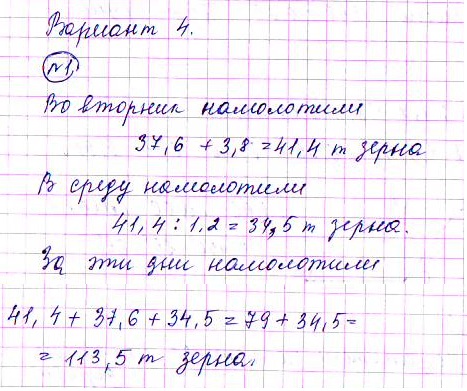 Вариант 4.
№1.
Во вторник намолотили
37,6 + 3,8 = 41,4 т зерна
В среду намолотили
41,4 : 1,2 = 34,5 т зерна.
За эти дни намолотили
41,4 + 37,6 + 34,5 = 79 + 34,5 =
= 113,5 т зерна.